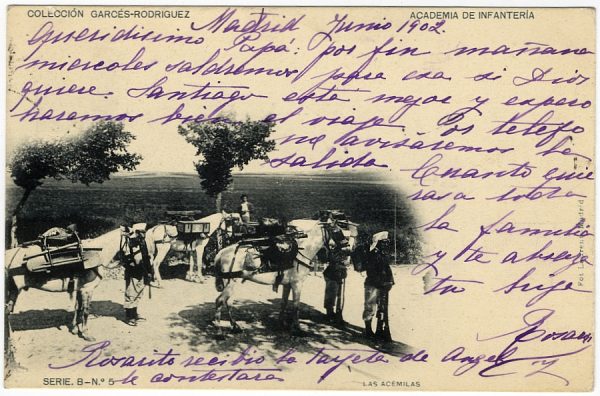 COLECCIÓN GARCÉS-RODRIGUEZ
ACADEMIA DE INFANTERÍA
Madrid Junio 1902.
Queridisimo Papá: por fin mañana
miercoles saldremos para esa si Dios
quiere. Santiago esta mejor y espero
haremos bien el viaje. Por telefo
no avisaremos la
salida. Cuanto quie
ras a toda
la familia
y te abraza
tu hija
Rosario
Rosarito recibio la tarjeta de Angel y
le contestara
SERIE. B-N.º 5
LAS ACÉMILAS
Madrid